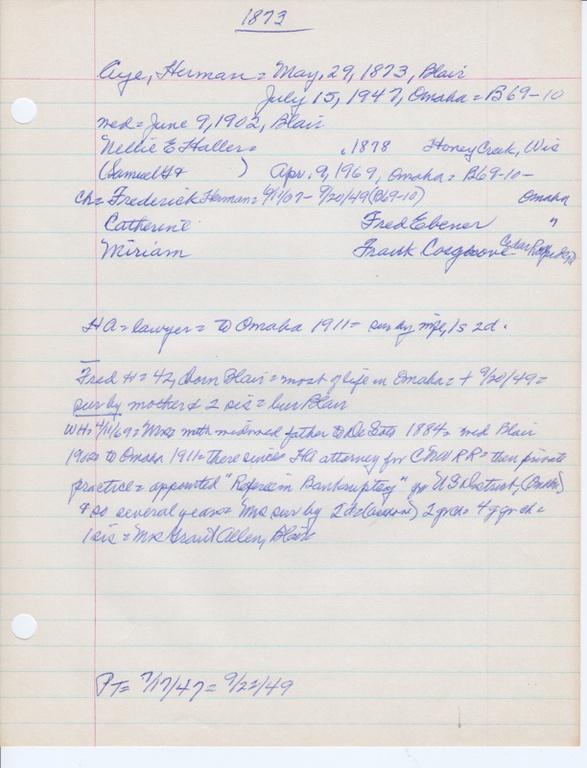 1873
Aye, Herman = May, 29, 1873, Blair
July 15, 1947, Omaha = B69-10
wed = June 9, 1902, Blair
Nellie E Haller = c.1878 Honey Creek, Wis
(Samuel H & ) Apr. 9, 1969, Omaha = B69-10-
Ch = Frederick Herman = 6/11/07 - 9/20/49 (B69-10) Omaha
Catherine Fred Ebener "
Miriam Frank Cosgrove Cedar Rapids, Ia
HA = lawyer = to Omaha 1911 = sur by wife, 1s 2d.
Fred H = 42, born Blair = most of life in Omaha = + 9/20/49 =
sur by mother & 2 sis = bur Blair
WH = 4/11/69 = Mrs with widowed father to De Soto 1884 = wed Blair
1902 to Omaha 1911 = there since = HA attorney for CNWRR = then private
practice = appointed "Referee in Bankruptcy" for US District,
& so several years = Mrs sur by 2 d 2 grch = 4 ggrch =
1 sis = Mrs Grant Allen, Blair
PT = 7/17/47 = 9/22/49